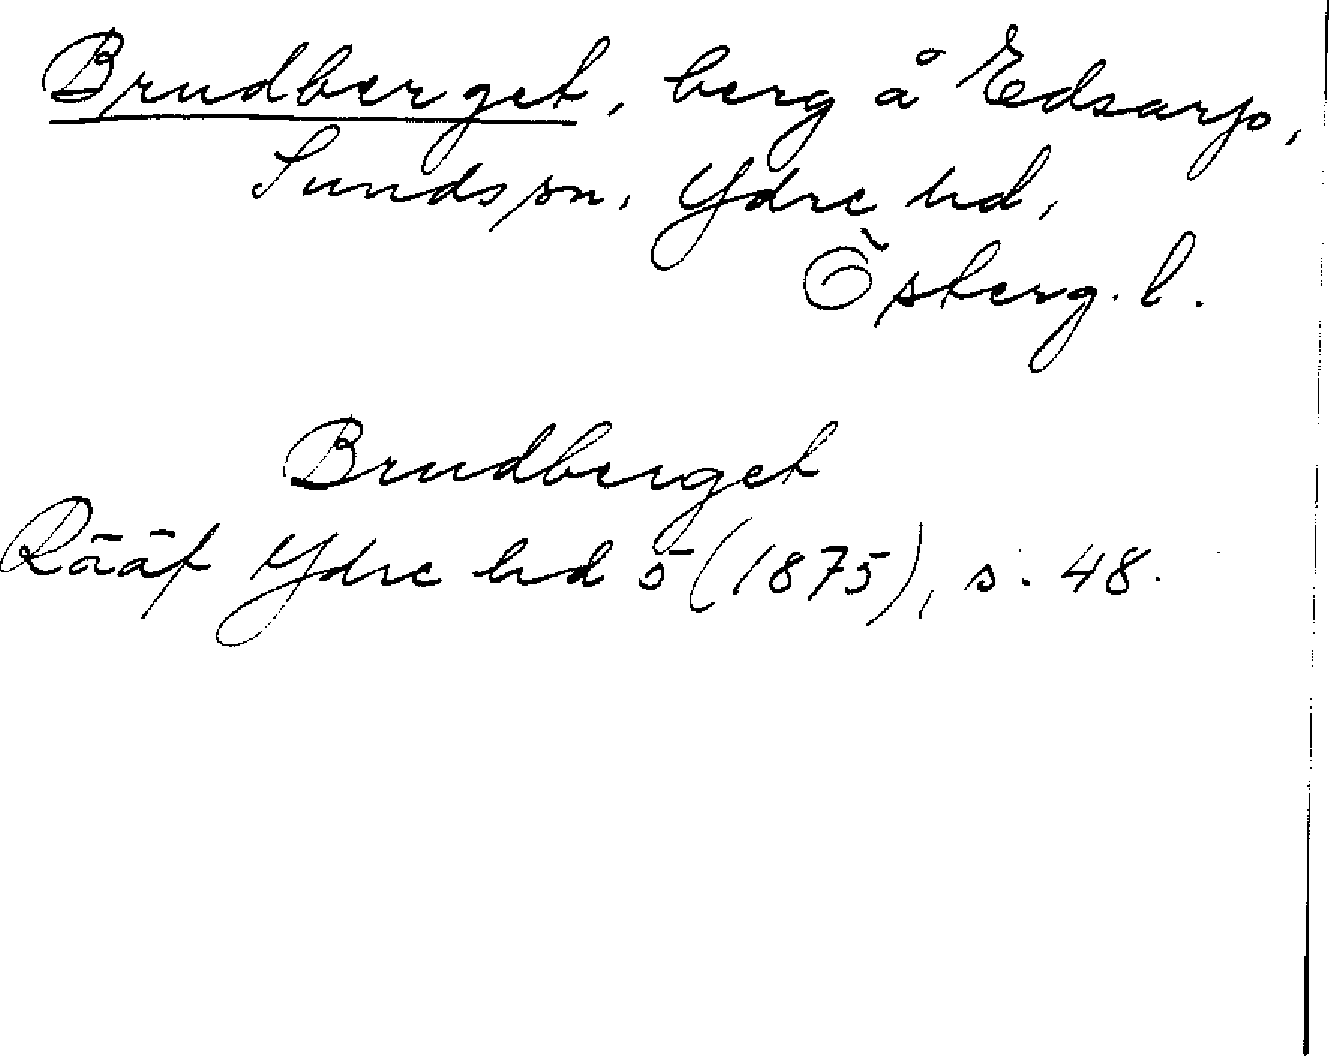 Brudberget, berg å Edsarp,
Sunds sn, Ydre hd,
Österg. l.
Brudberget
Rääf Ydre hd 5 (1875), s. 48.